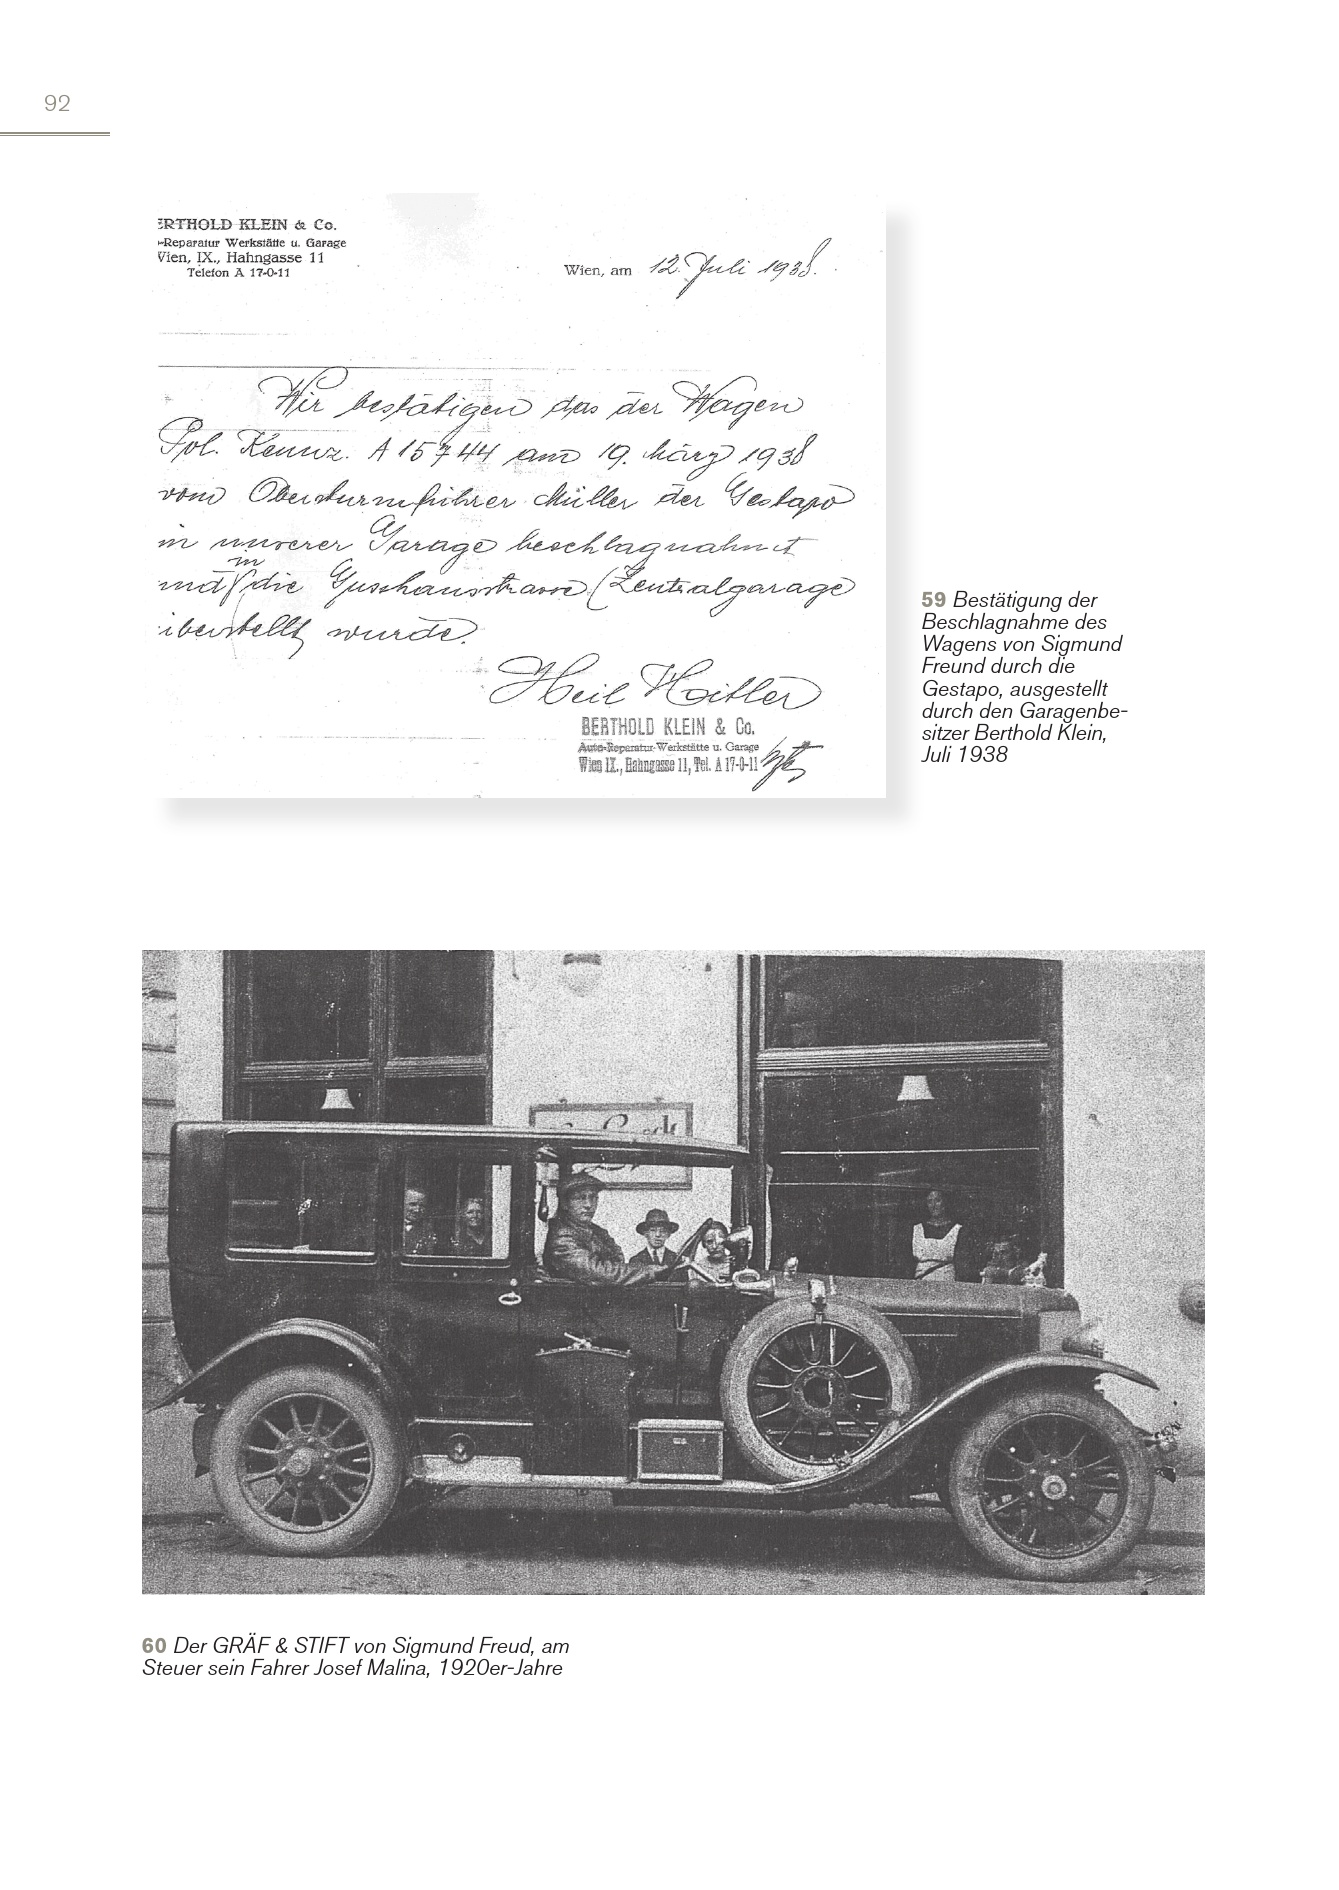 92
ERTHOLD KLEIN & Co.
-Reparatur Werkstätte u. Garage
Wien, IX., Hahngasse 11
Telefon A 17-0-11
Wien, am 12. Juli 1938.
Wir bestätigen das der Wagen
Pol. Kennz. A 15744 am 19. März 1938
vom Obersturmführer Müller der Gestapo
in unserer Garage beschlagnahmt
und in die Gusshausstrasse (Zentralgarage
überstellt wurde.
Heil Hitler
BERTHOLD KLEIN & Co.
Auto-Reperatur-Werkstätte u. Garage
Wien IX., Hahngasse 11, Tel. A 17-0-11
59 Bestätigung der
Beschlagnahme des
Wagens von Sigmund
Freund durch die
Gestapo, ausgestellt
durch den Garagenbe-
sitzer Berthold Klein,
Juli 1938
60 Der GRÄF & STIFT von Sigmund Freud, am
Steuer sein Fahrer Josef Malina, 1920er-Jahre